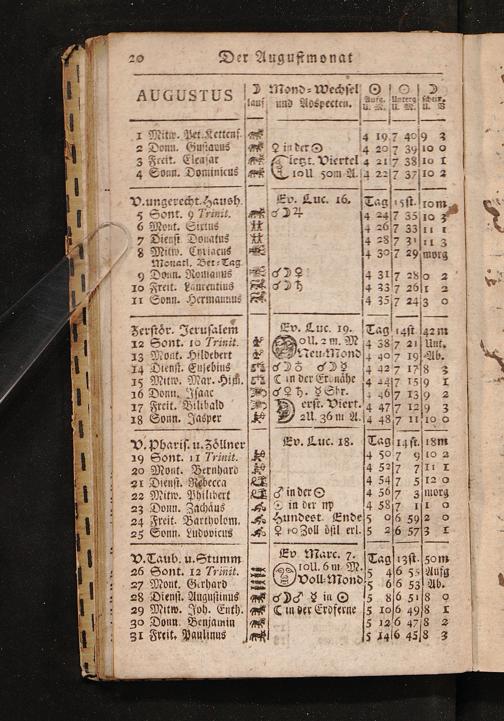 20 Der Augustmonat
AUGUSTUS ☽ lauf Mond-Wechsel und Aspecten. ☉ Aufg. U. M. ☉ Unterg U. M. ☽ schein. U. V
1 Mitw. Pet. Kettenf. 4 19 7 40 9 3
2 Donn. Gustavus ♀ in der ☉ 4 20 7 39 10 0
3 Freit. Eleasar letzt. Viertel 4 21 7 38 10 1
4 Sonn. Dominicus 10U. 50m. A. 4 22 7 37 10 2
V. ungerecht. Haush. Ev. Luc. 16. Tag 15st. 10m
5 Sont. 9 Trinit. ☌☽♃ 4 24 7 35 10 3
6 Mont. Sixtus 4 26 7 33 11 1
7 Dienst Donatus 4 28 7 31 11 3
8 Mitw. Cyriacus 4 30 7 29 morg
Monatl. Bet-Tag
9 Donn. Romanus ☌☽♀ 4 31 7 28 0 2
10 Freit. Laurentius ☌☽♄ 4 33 7 26 1 2
11 Sonn. Hermannus 4 35 7 24 3 0
Zerstör. Jerusalem Ev. Luc. 19. Tag 14st 42m
12 Sont. 10 Trinit. 0U. 2 m. M 4 38 7 21 Unt.
13 Mont. Hildebert Neu-Mond 4 40 7 19 Ab.
14 Dienst. Eusebius 4 42 7 17 8 3
15 Mitw. Mar. Him. ☾ in der Erdnähe 4 44 7 15 9 1
16 Donn. Isaac 4 46 7 13 9 2
17 Freit. Bilibald erst. Viert. 4 47 7 12 9 3
18 Sonn. Jasper 2U. 36 m A. 4 48 7 11 10 0
V. Pharis. u. Zöllner Ev. Luc. 18. Tag 14st. 18m
19 Sont. 11 Trinit. 4 50 7 9 10 2
20 Mont. Bernhard 4 52 7 7 11 1
21 Dienst. Rebecca 4 54 7 5 12 0
22 Mitw. Philibert ♂ in der ☉ 4 56 7 3 morg
23 Donn. Zachäus ☉ in der ♍ 4 58 7 1 1 0
24 Freit. Bartholom. Hundest. Ende 5 0 6 59 2 0
25 Sonn. Ludovicus ♀ 10 Zoll östl erl. 5 2 6 57 3 1
V. Taub. u. Stumm Ev. Marc. 7. Tag 13st. 50m
26 Sont. 12 Trinit. 10U. 6 m. M. 5 4 6 55 Aufg
27 Mont. Gerhard Voll-Mond 5 6 6 53 Ab.
28 Dienst. Augustinus ☌☽♂ ☿ in ☉ 5 8 6 51 8 0
29 Mitw. Joh. Enth. ☾ in der Erdferne 5 10 6 49 8 1
30 Donn. Benjamin 5 12 6 47 8 2
31 Freit. Paulinus 5 14 6 45 8 3